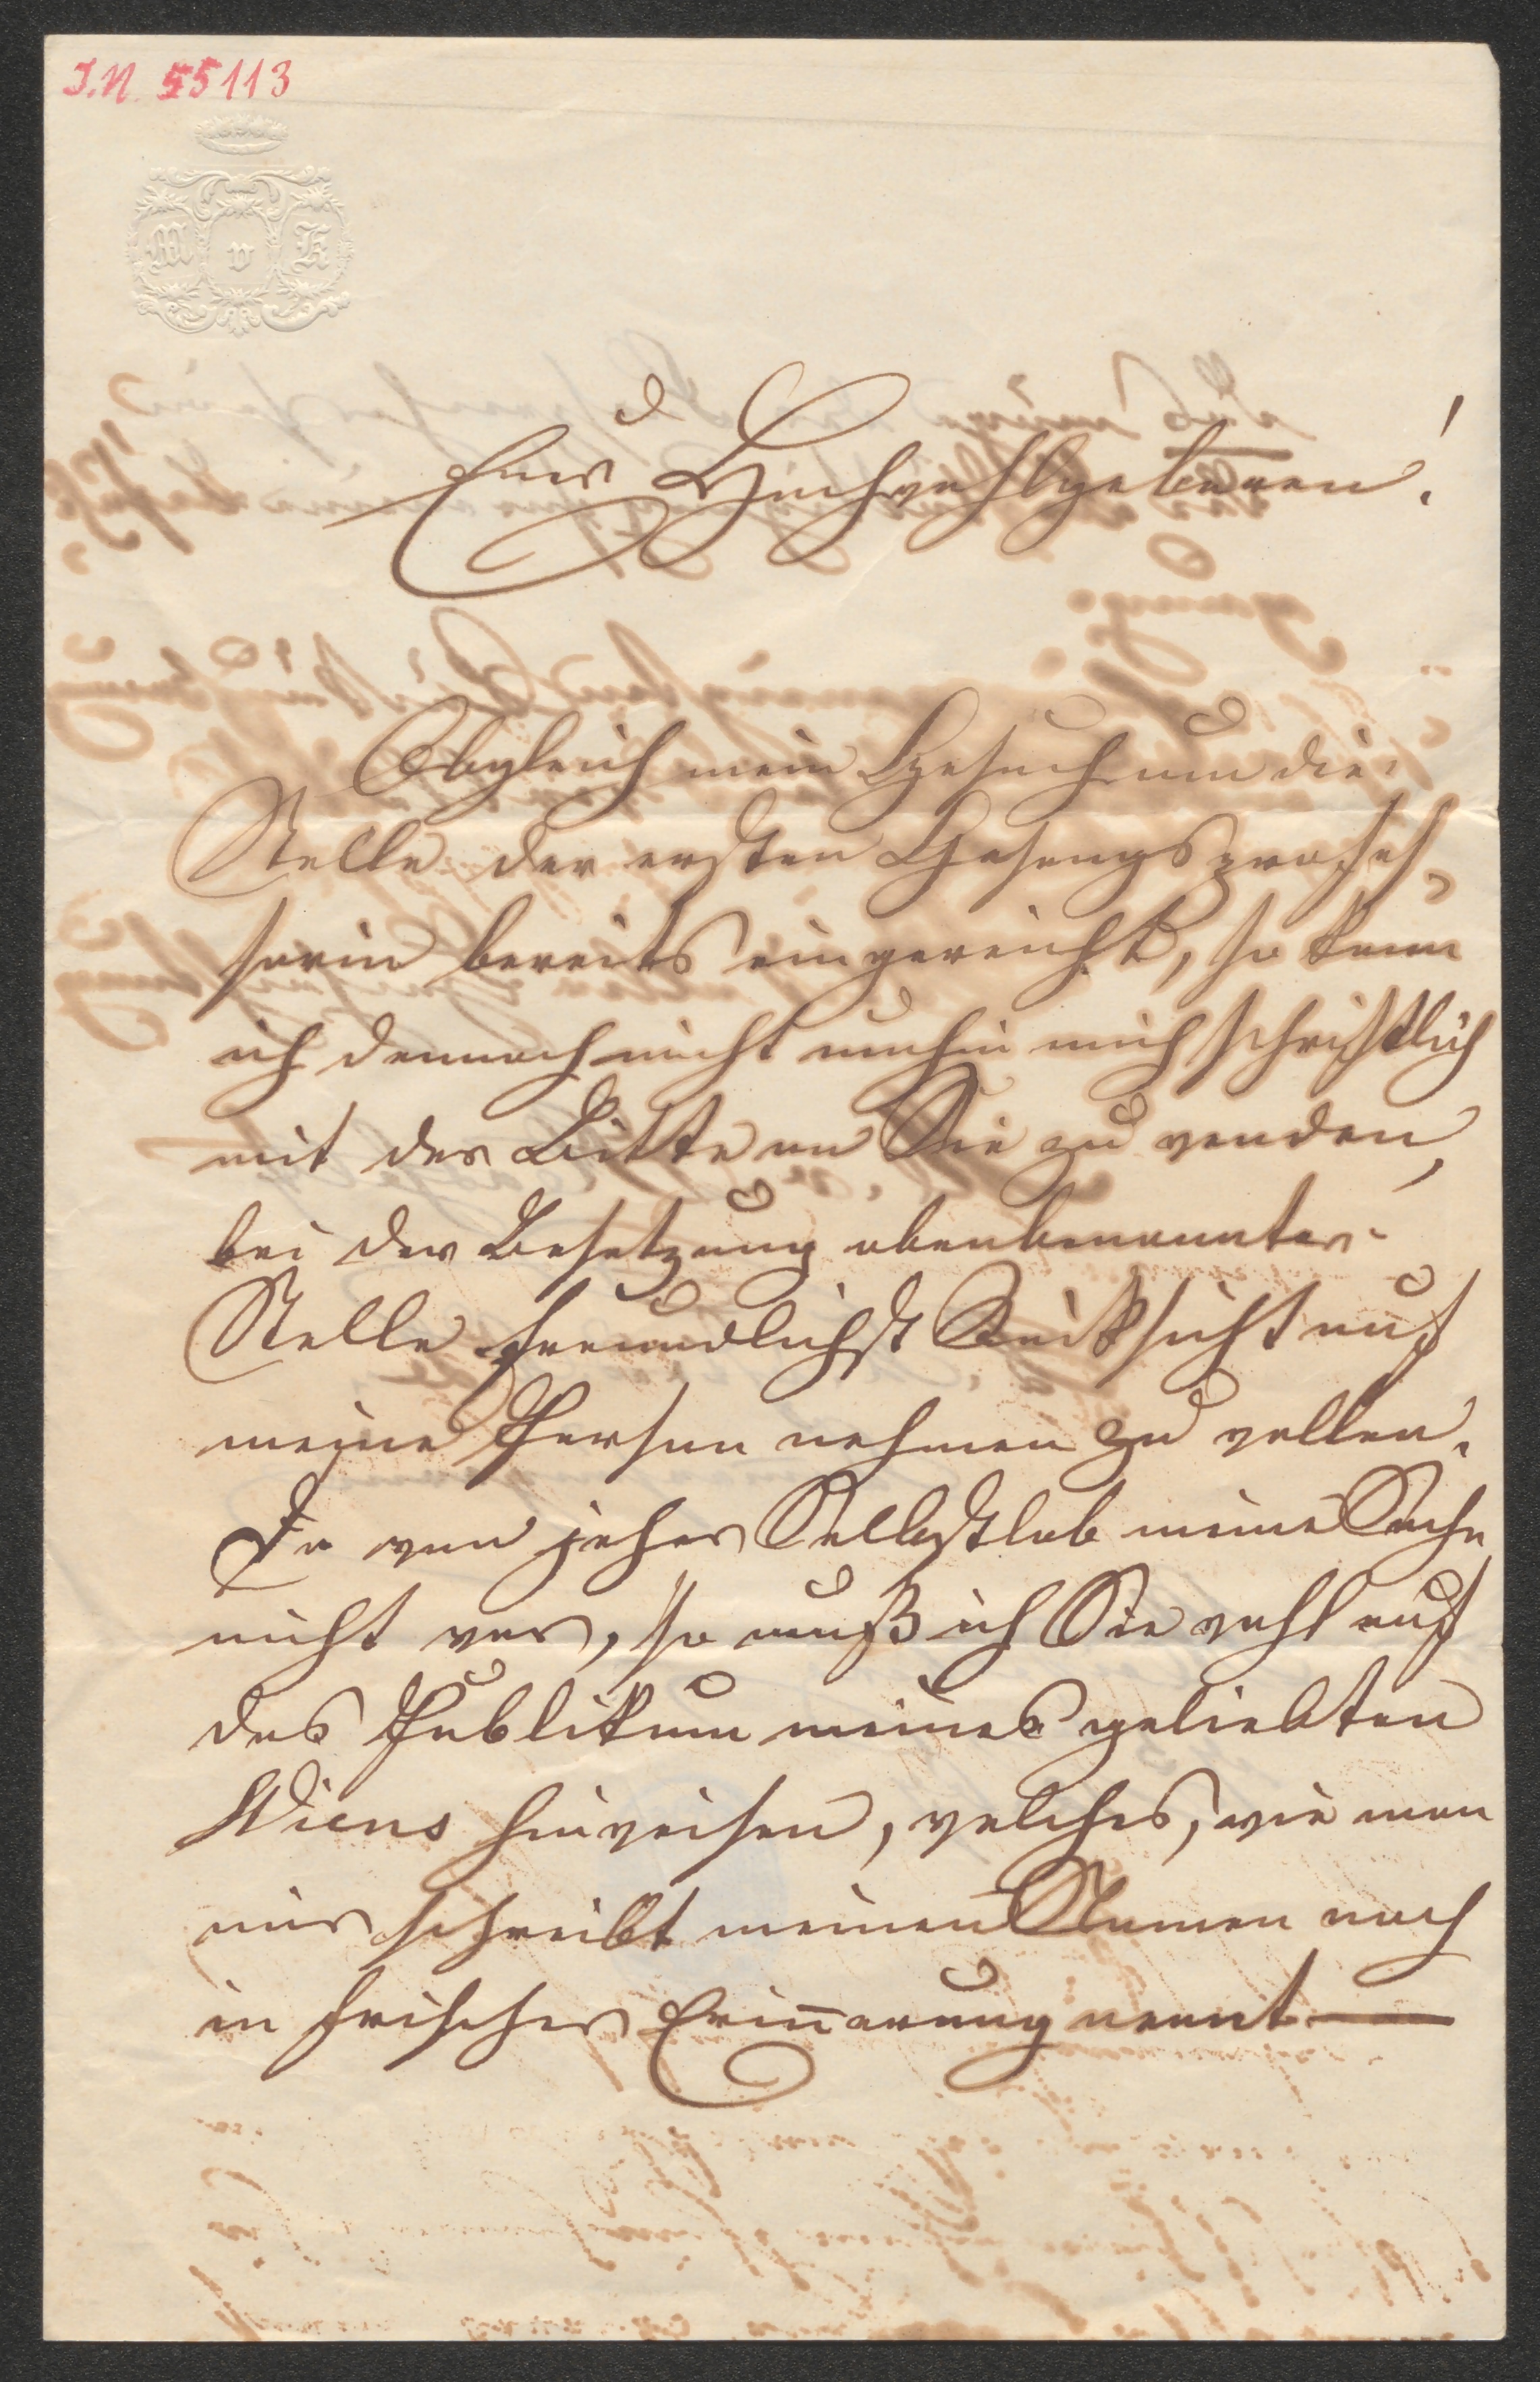 I.N. 55113
M v K
Euer Hochwohlgeboren!
Obgleich mein Gesuch um die
Stelle der ersten Gesangsprofes-
sorin bereits eingereicht, so kann
ich dennoch nicht umhin mich schriftlich
mit der Bitte an Sie zu wenden,
bei der Besetzung obenbenannter
Stelle freundlichst Rücksicht auf
meine Person nehmen zu wollen.
Da von jeher Selbstlob meine Sache
nicht war, so muß ich Sie wohl auf
das Publikum meines geliebten
Wiens hinweisen, welches, wie man
mir schreibt meinen Namen noch
in frischer Erin̄erung nennt —